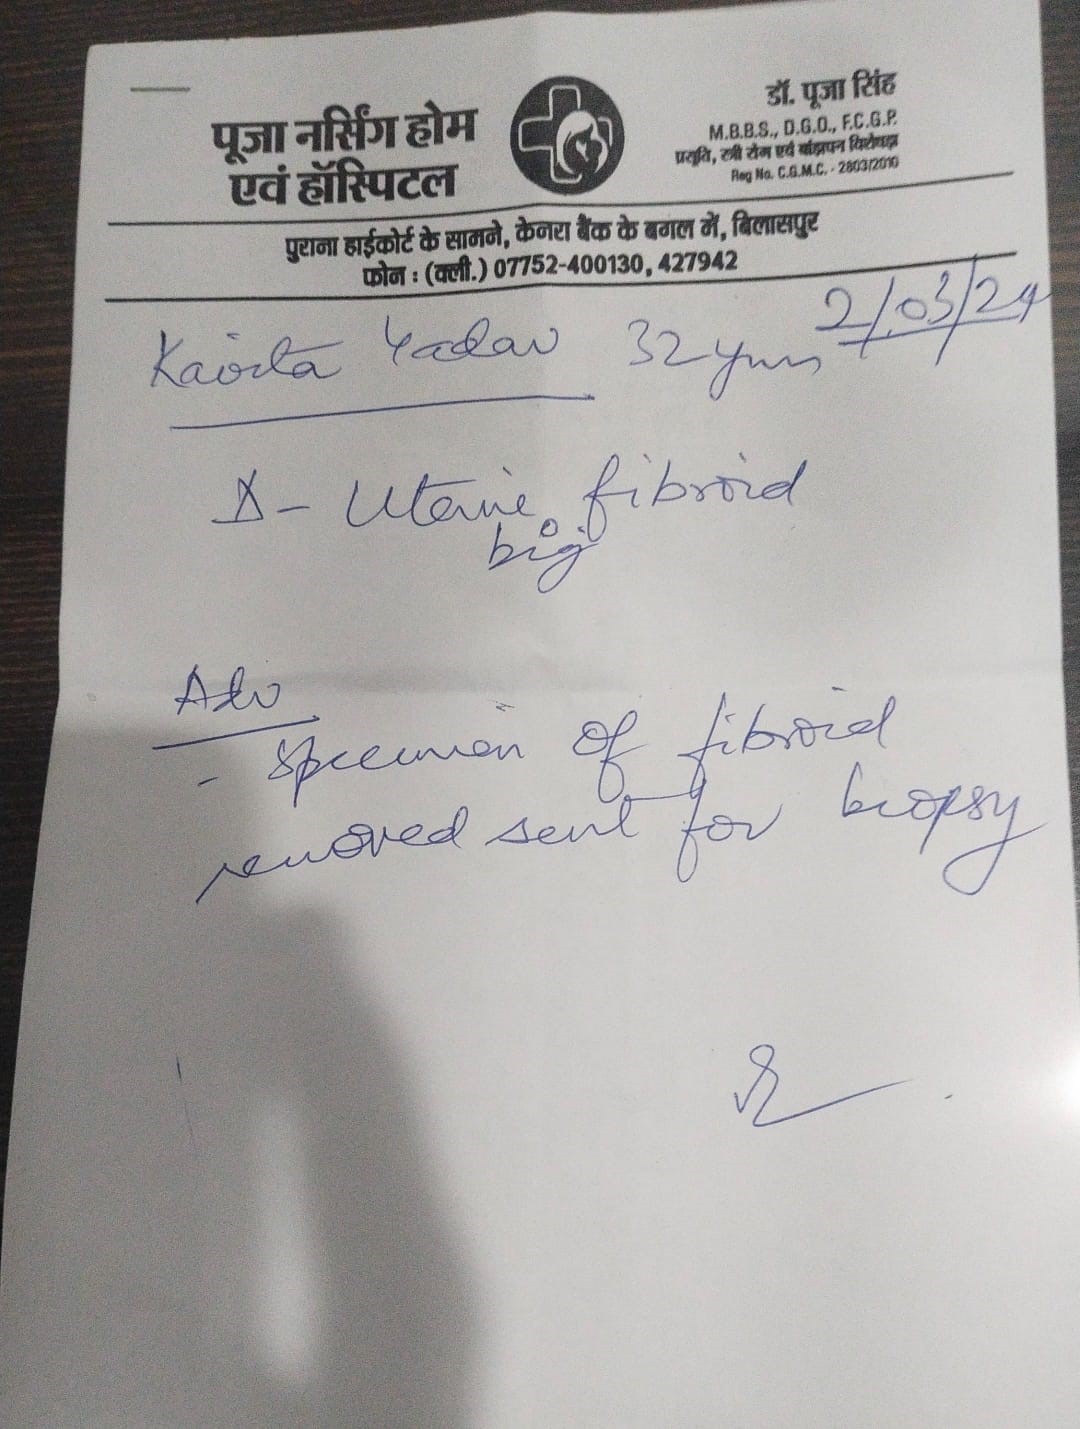 पूजा नर्सिंग होम
एवं हॉस्पिटल
डॉ. पूजा सिंह
M.B.B.S., D.G.O., F.C.G.P.
प्रसूति, स्त्री रोग एवं बांझपन विशेषज्ञ
Reg No. C.G.M.C. - 2803/2010
पुराना हाईकोर्ट के सामने, केनरा बैंक के बगल में, बिलासपुर
फोन : (क्ली.) 07752-400130, 427942
2/03/24
Kavita Yadav 32 yrs
Δ - Uterine fibroid
big
Adv
- Specimen of fibroid
removed sent for biopsy